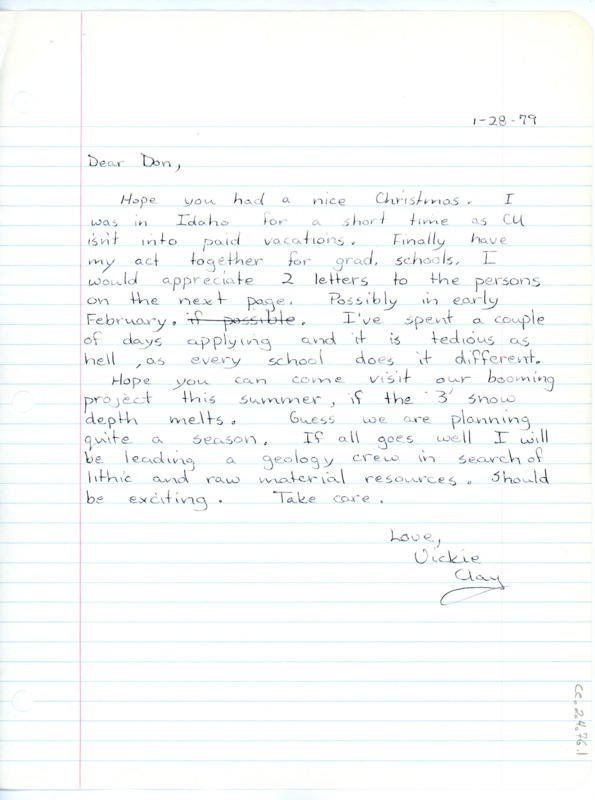 1-28-79
Dear Don,
Hope you had a nice Christmas. I
was in Idaho for a short time as CU
isn't into paid vacations. Finally have
my act together for grad. schools. I
would appreciate 2 letters to the persons
on the next page. Possibly in early
February, if possible. I've spent a couple
of days applying and it is tedious as
hell, as every school does it different.
Hope you can come visit our booming
project this summer, if the 3' snow
depth melts. Guess we are planning
quite a season. If all goes well I will
be leading a geology crew in search of
lithic and raw material resources. Should
be exciting. Take care.
Love,
Vickie
Clay
cc.24.76.1